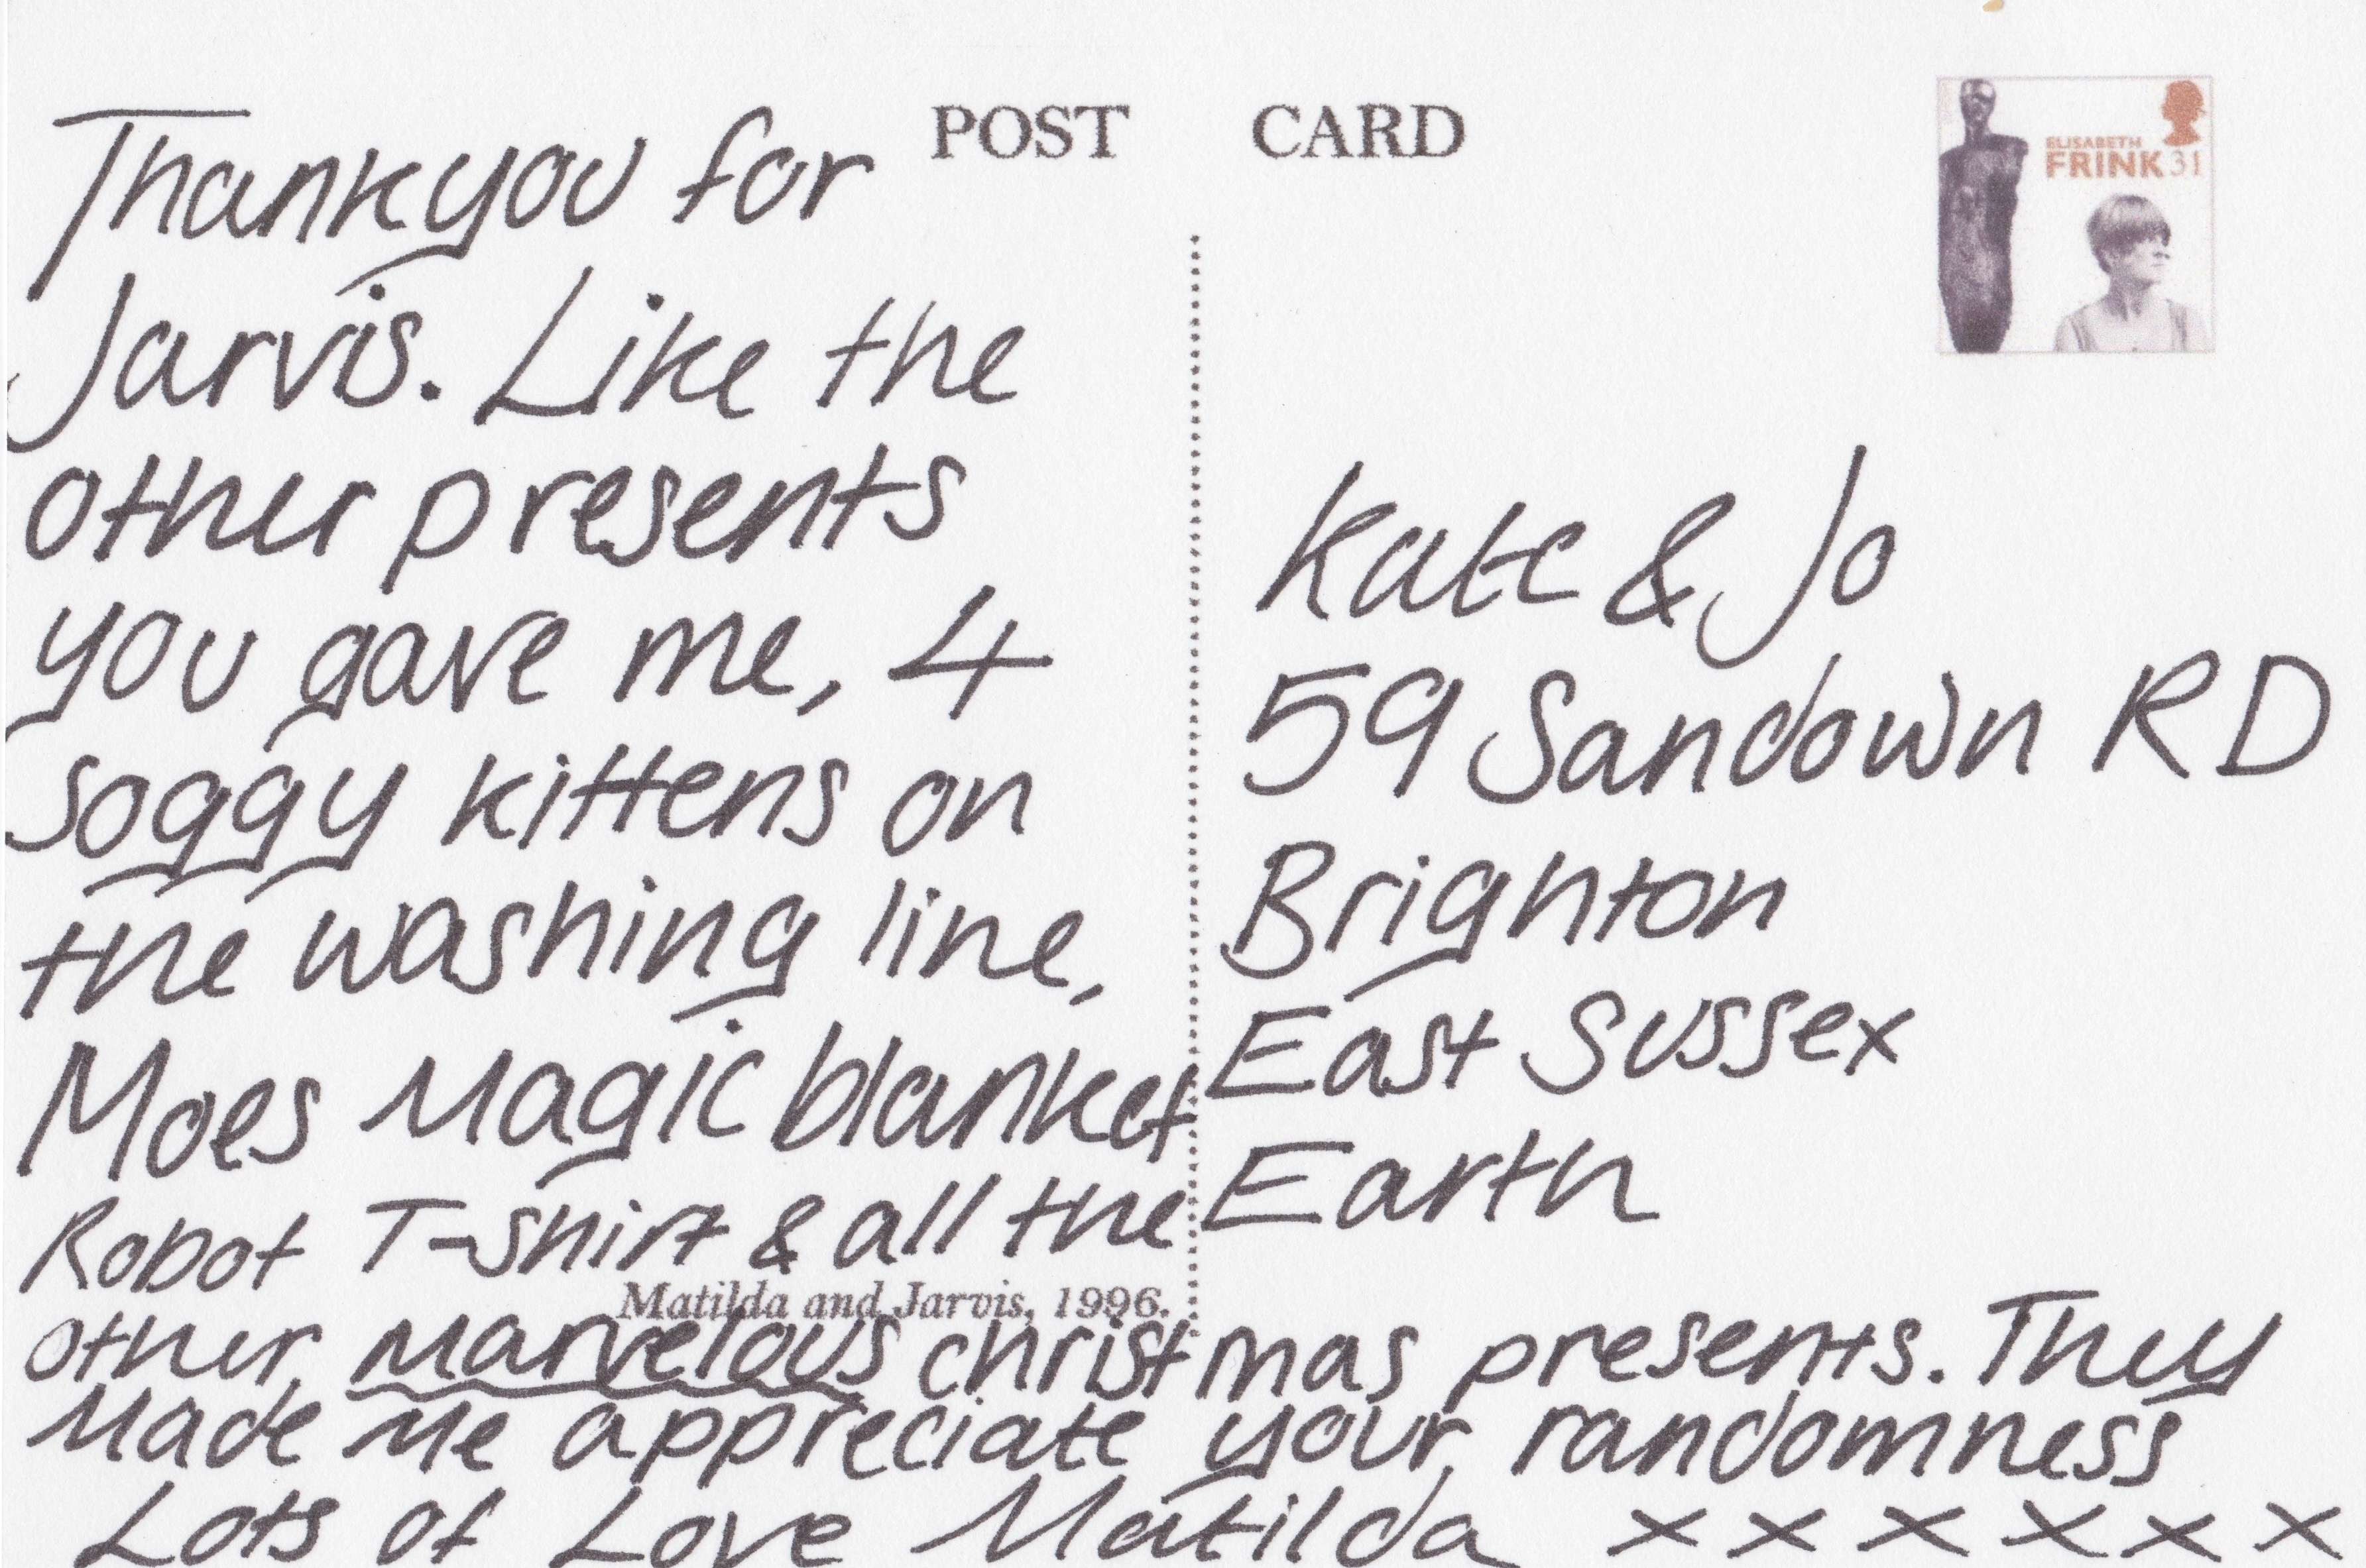 POST CARD
ELISABETH
FRINK 31
Thankyou for
Jarvis. Like the
other presents
you gave me, 4
soggy kittens on
the washing line,
Moes Magic blanket
Robot T-shirt & all the
Matilda and Jarvis, 1996.
other marvelous christmas presents. They
Made Me appreciate your randomness
Lots of Love Matilda x x x x x x
Kate & Jo
59 Sandown RD
Brighton
East Sussex
Earth